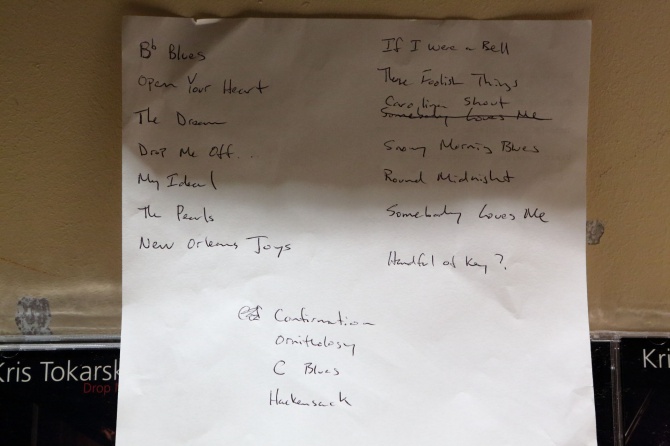 Bb Blues
Open Your Heart
The Dream
Drop Me Off..
My Ideal
The Pearls
New Orleans Joys
If I Were a Bell
These Foolish Things
Carolina Shout
Somebody Loves Me
Snowy Morning Blues
Round Midnight
Somebody Loves Me
Handful of Key?
Confirmation
Ornithology
C Blues
Hackensack
Kris Tokarsk
Drop
Kri